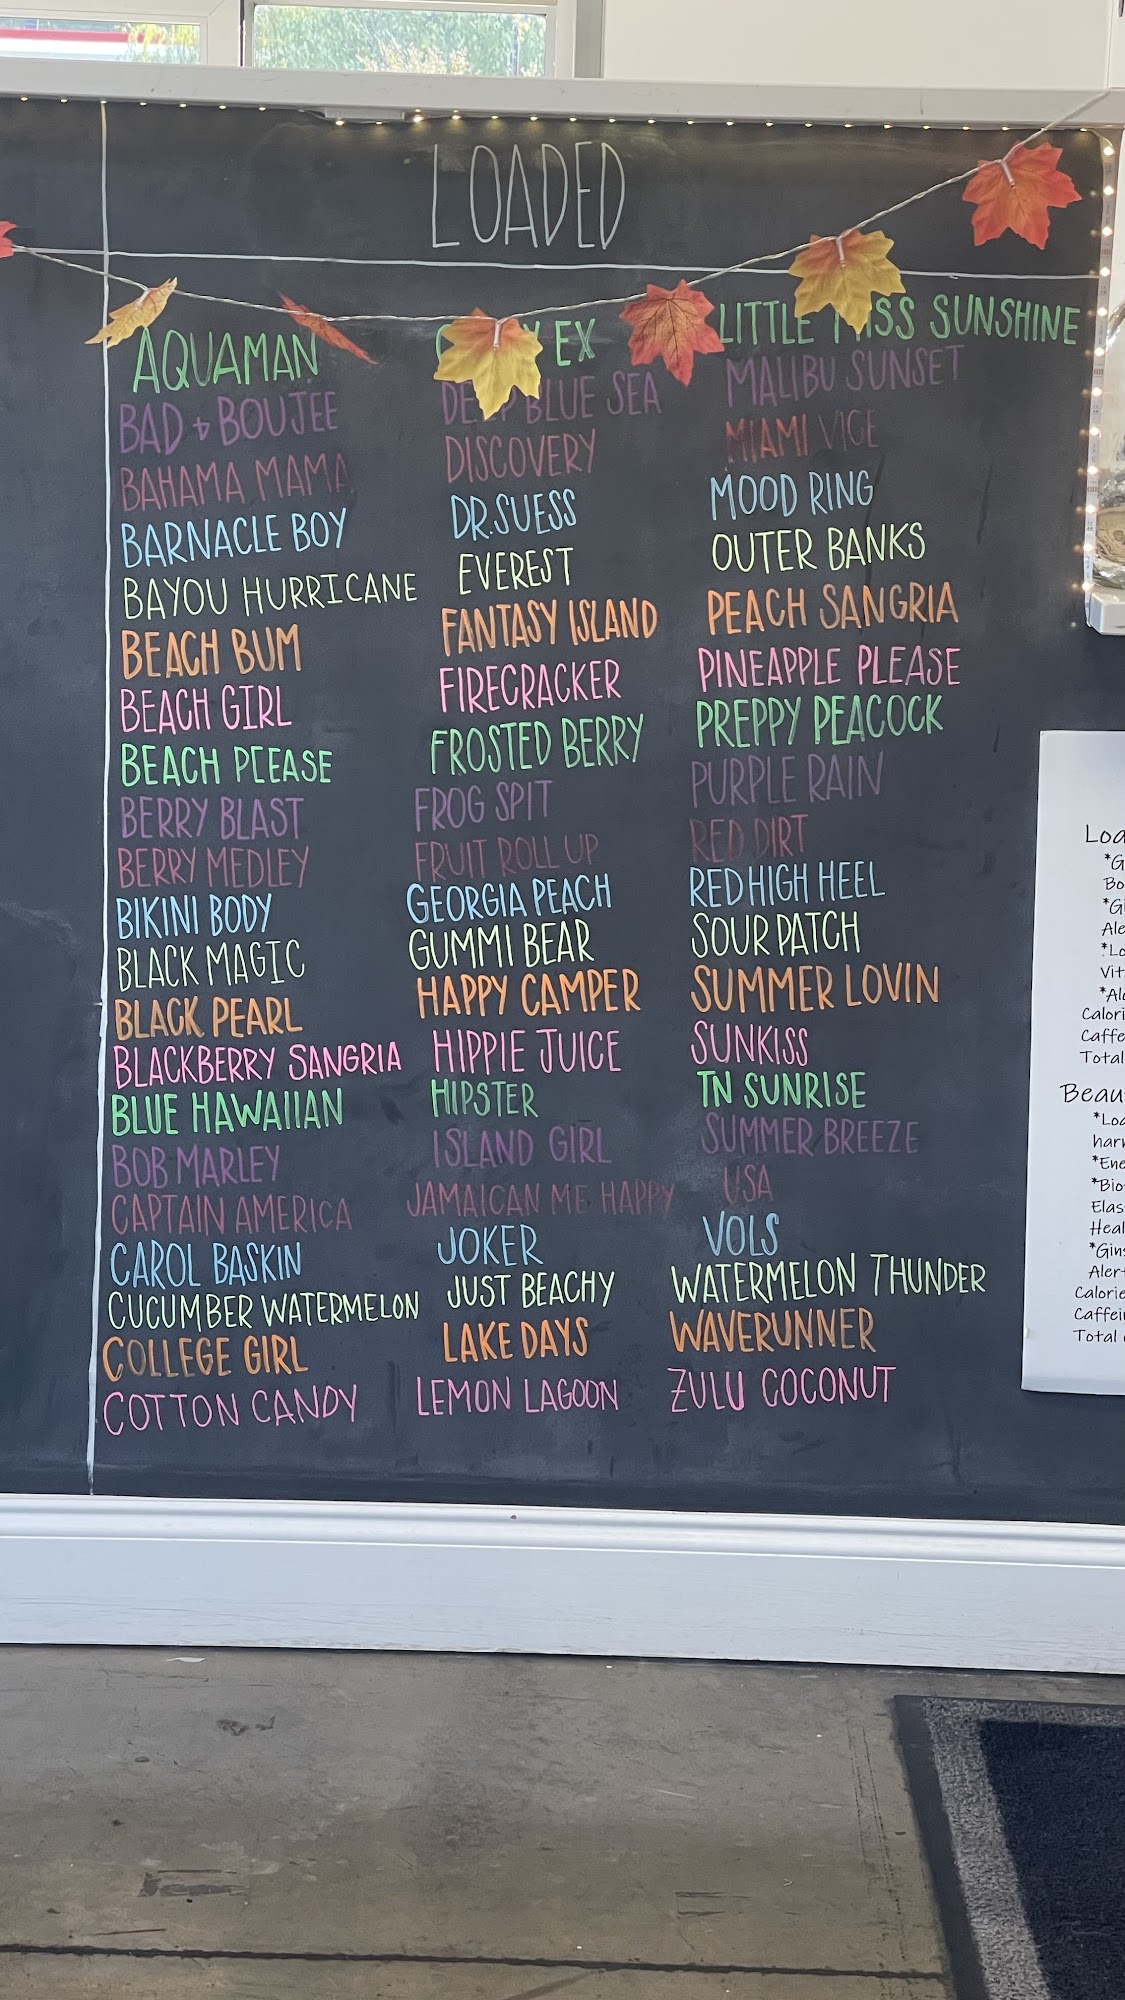 LOADED
AQUAMAN
BAD & BOUJEE
BAHAMA MAMA
BARNACLE BOY
BAYOU HURRICANE
BEACH BUM
BEACH GIRL
BEACH PLEASE
BERRY BLAST
BERRY MEDLEY
BIKINI BODY
BLACK MAGIC
BLACK PEARL
BLACKBERRY SANGRIA
BLUE HAWAIIAN
BOB MARLEY
CAPTAIN AMERICA
CAROL BASKIN
CUCUMBER WATERMELON
COLLEGE GIRL
COTTON CANDY
EX
DEEP BLUE SEA
DISCOVERY
DR.SUESS
EVEREST
FANTASY ISLAND
FIRECRACKER
FROSTED BERRY
FROG SPIT
FRUIT ROLL UP
GEORGIA PEACH
GUMMI BEAR
HAPPY CAMPER
HIPPIE JUICE
HIPSTER
ISLAND GIRL
JAMAICAN ME HAPPY
JOKER
JUST BEACHY
LAKE DAYS
LEMON LAGOON
LITTLE MISS SUNSHINE
MALIBU SUNSET
MIAMI VICE
MOOD RING
OUTER BANKS
PEACH SANGRIA
PINEAPPLE PLEASE
PREPPY PEACOCK
PURPLE RAIN
RED DIRT
RED HIGH HEEL
SOUR PATCH
SUMMER LOVIN
SUNKISS
TN SUNRISE
SUMMER BREEZE
USA
VOLS
WATERMELON THUNDER
WAVERUNNER
ZULU COCONUT
Total
Total